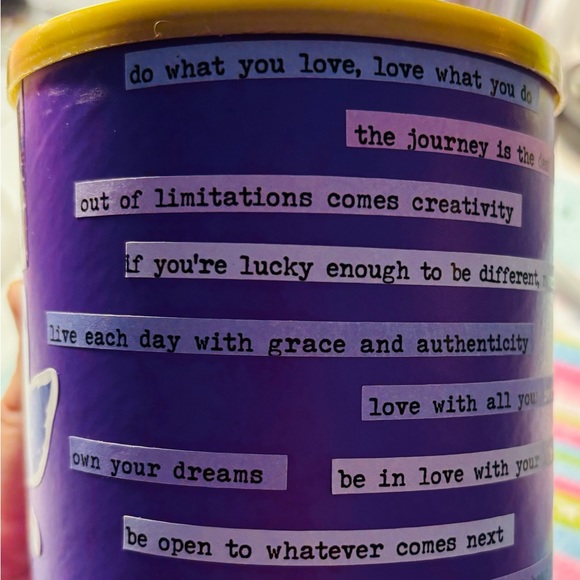 do what you love, love what you do
the journey is the
out of limitations comes creativity
if you're lucky enough to be different,
live each day with grace and authenticity
love with all your
own your dreams
be in love with your
be open to whatever comes next